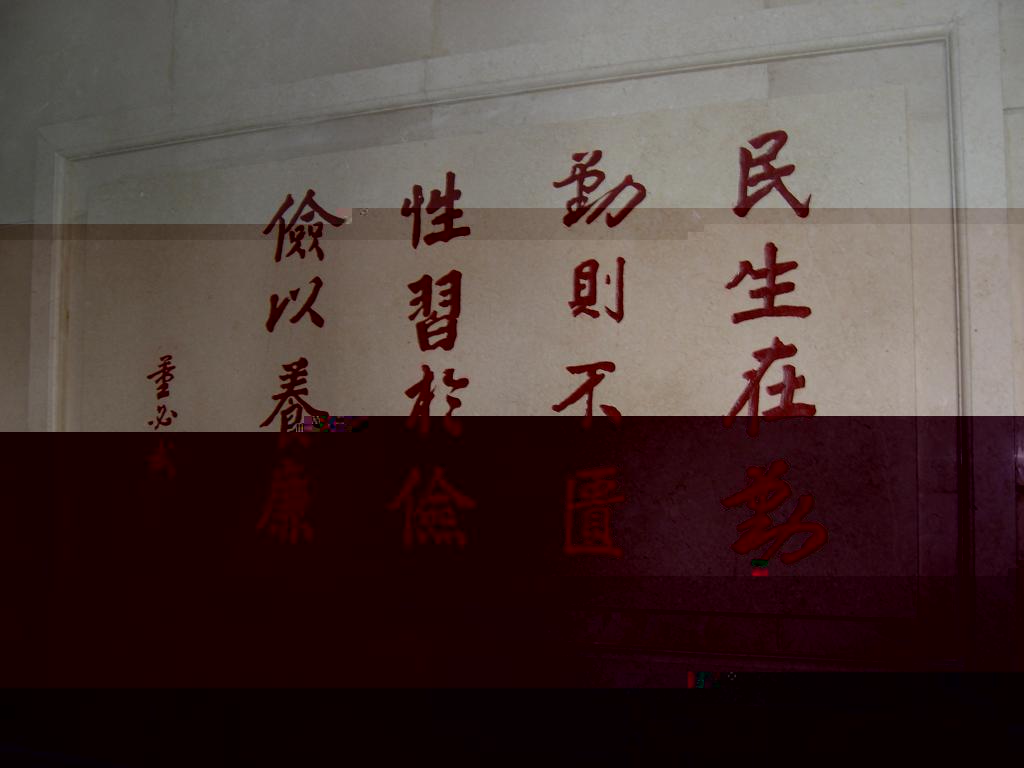 民生在勤
勤則不匱
性習於儉
儉以養廉
董必武